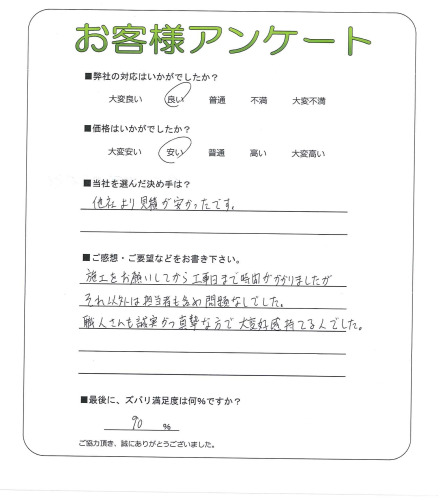 お客様アンケート
■弊社の対応はいかがでしたか?
大変良い 良い 普通 不満 大変不満
■価格はいかがでしたか?
大変安い 安い 普通 高い 大変高い
■当社を選んだ決め手は?
他社より見積が安かったです。
■ご感想・ご要望などをお書き下さい。
施工をお願いしてから工事日まで時間がかかりましたが
それ以外は担当者も含め問題なしでした。
職人さんも誠実かつ真摯な方で大変好感持てる人でした。
■最後に、ズバリ満足度は何%ですか?
90 %
ご協力頂き、誠にありがとうございました。